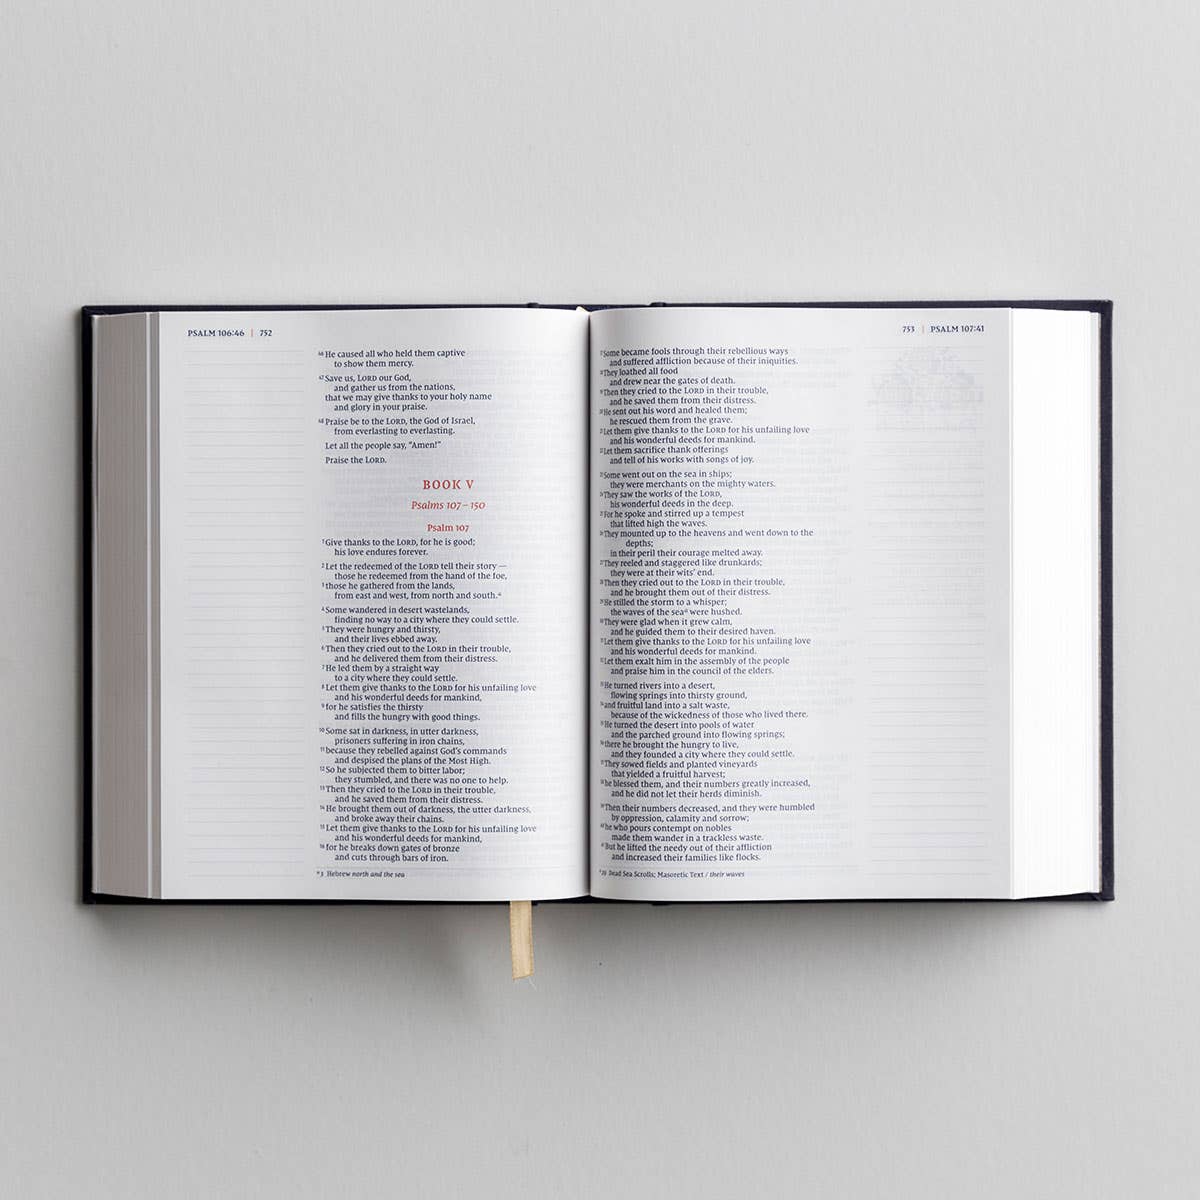 PSALM 106:46 | 752
46 He caused all who held them captive
to show them mercy.
47 Save us, LORD our God,
and gather us from the nations,
that we may give thanks to your holy name
and glory in your praise.
48 Praise be to the LORD, the God of Israel,
from everlasting to everlasting.
Let all the people say, “Amen!”
Praise the LORD.
BOOK V
Psalms 107–150
Psalm 107
1 Give thanks to the LORD, for he is good;
his love endures forever.
2 Let the redeemed of the LORD tell their story —
those he redeemed from the hand of the foe,
3 those he gathered from the lands,
from east and west, from north and south.a
4 Some wandered in desert wastelands,
finding no way to a city where they could settle.
5 They were hungry and thirsty,
and their lives ebbed away.
6 Then they cried out to the LORD in their trouble,
and he delivered them from their distress.
7 He led them by a straight way
to a city where they could settle.
8 Let them give thanks to the LORD for his unfailing love
and his wonderful deeds for mankind,
9 for he satisfies the thirsty
and fills the hungry with good things.
10 Some sat in darkness, in utter darkness,
prisoners suffering in iron chains,
11 because they rebelled against God’s commands
and despised the plans of the Most High.
12 So he subjected them to bitter labor;
they stumbled, and there was no one to help.
13 Then they cried to the LORD in their trouble,
and he saved them from their distress.
14 He brought them out of darkness, the utter darkness,
and broke away their chains.
15 Let them give thanks to the LORD for his unfailing love
and his wonderful deeds for mankind,
16 for he breaks down gates of bronze
and cuts through bars of iron.
a 3 Hebrew north and the sea
753 | PSALM 107:41
Some became fools through their rebellious ways
and suffered affliction because of their iniquities.
They loathed all food
and drew near the gates of death.
Then they cried to the LORD in their trouble,
and he saved them from their distress.
He sent out his word and healed them;
he rescued them from the grave.
Let them give thanks to the LORD for his unfailing love
and his wonderful deeds for mankind.
Let them sacrifice thank offerings
and tell of his works with songs of joy.
Some went out on the sea in ships;
they were merchants on the mighty waters.
They saw the works of the LORD,
his wonderful deeds in the deep.
For he spoke and stirred up a tempest
that lifted high the waves.
They mounted up to the heavens and went down to the
depths;
in their peril their courage melted away.
They reeled and staggered like drunkards;
they were at their wits’ end.
Then they cried out to the LORD in their trouble,
and he brought them out of their distress.
He stilled the storm to a whisper;
the waves of the sea were hushed.
They were glad when it grew calm,
and he guided them to their desired haven.
Let them give thanks to the LORD for his unfailing love
and his wonderful deeds for mankind.
Let them exalt him in the assembly of the people
and praise him in the council of the elders.
He turned rivers into a desert,
flowing springs into thirsty ground,
and fruitful land into a salt waste,
because of the wickedness of those who lived there.
He turned the desert into pools of water
and the parched ground into flowing springs;
there he brought the hungry to live,
and they founded a city where they could settle.
They sowed fields and planted vineyards
that yielded a fruitful harvest;
he blessed them, and their numbers greatly increased,
and he did not let their herds diminish.
Then their numbers decreased, and they were humbled
by oppression, calamity and sorrow;
he who pours contempt on nobles
made them wander in a trackless waste.
But he lifted the needy out of their affliction
and increased their families like flocks.
a 29 Dead Sea Scrolls; Masoretic Text / their waves